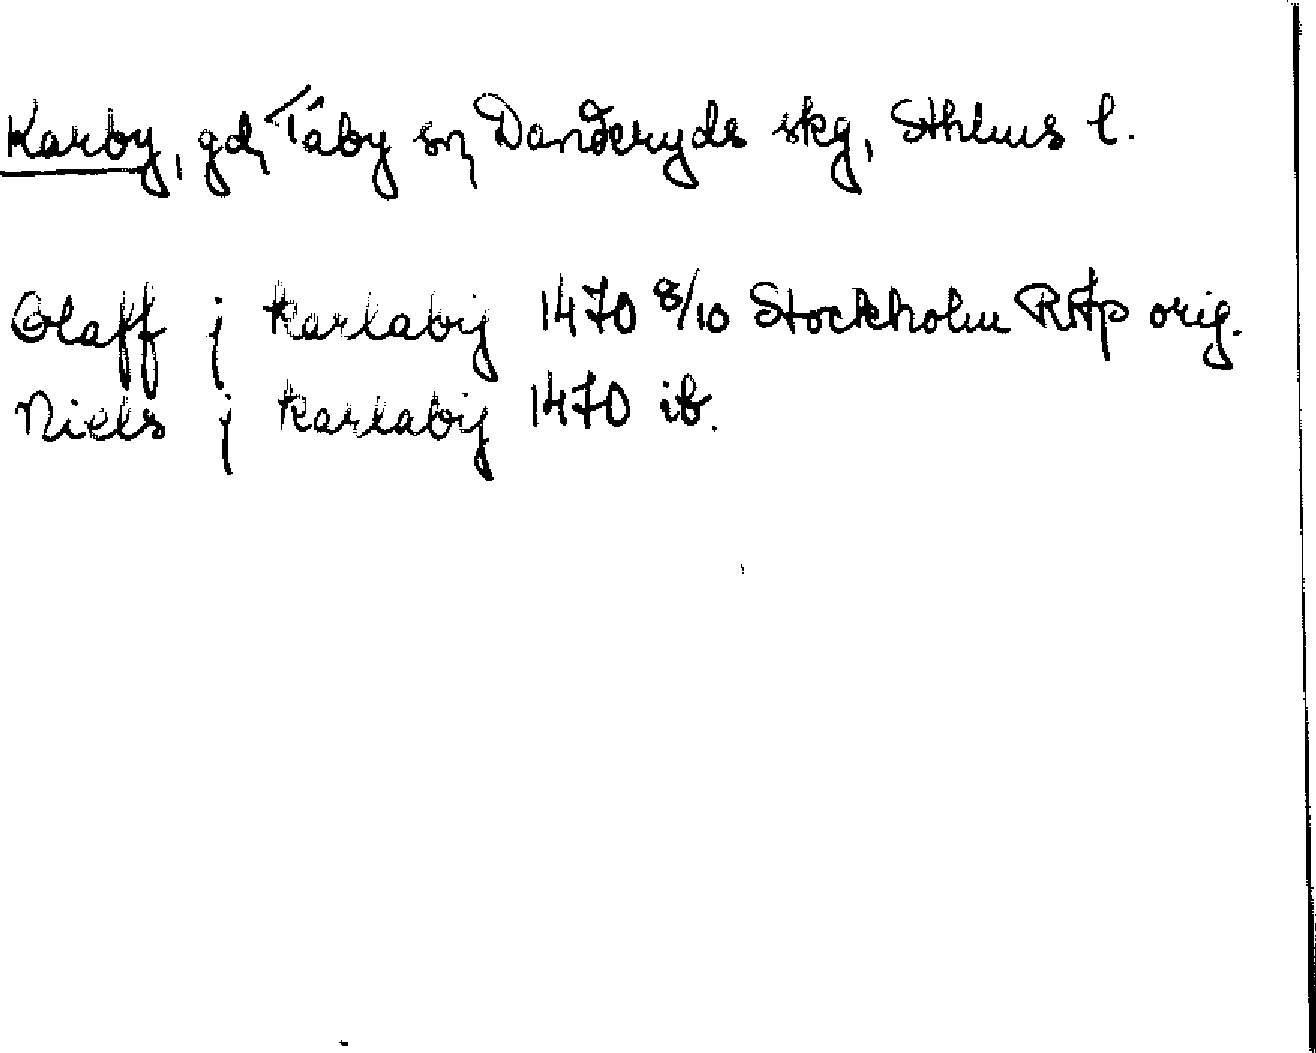 Karby, gd, Täby sn, Danderyds skg, Sthlms l.
Olaff j Karlaby 1470 8/10 Stockholm RAp orig.
Niels j Karlaby 1470 ib.